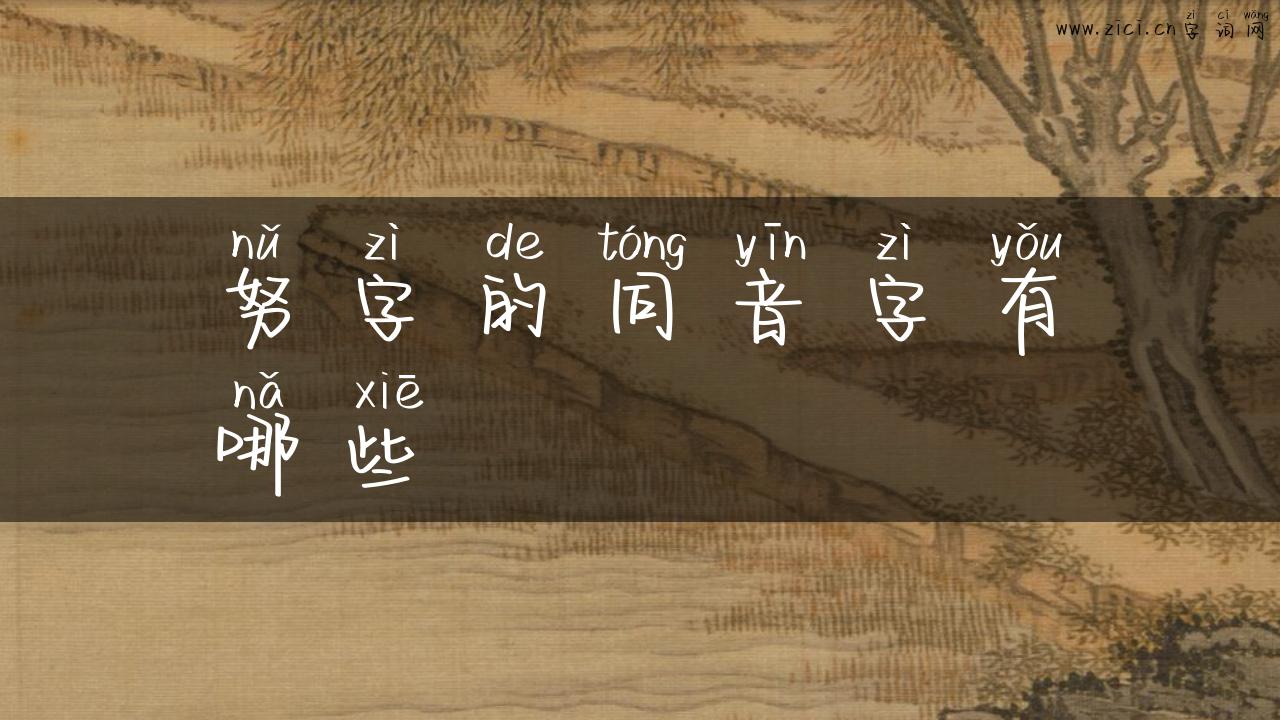 zì cí wǎng
www.zici.cn字词网
nǔ zì de tóng yīn zì yǒu
努字的同音字有
nǎ xiē
哪些